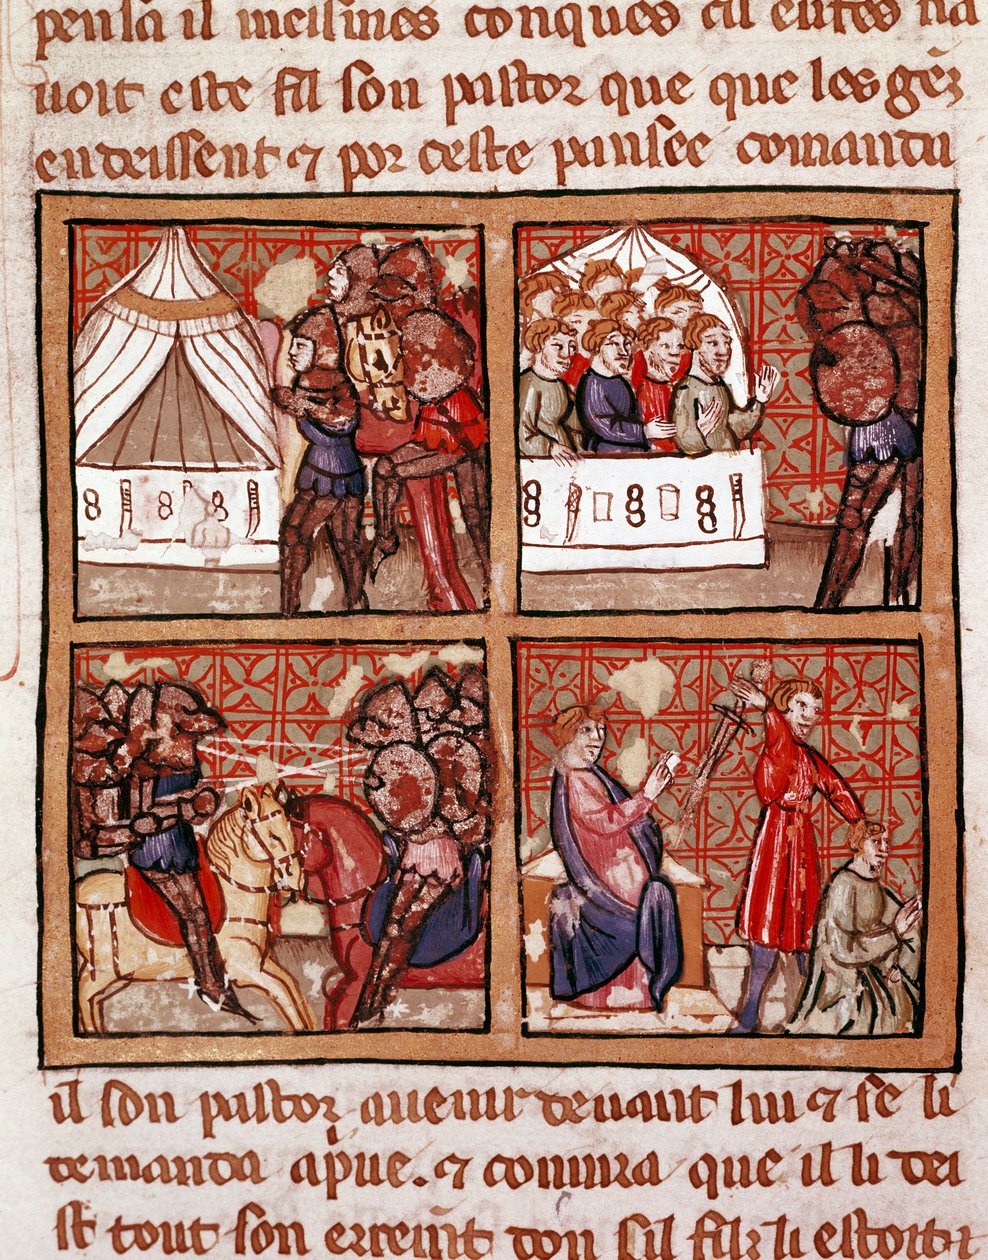 pensa il meismes conques cil enfes na
uoit este fil son pastor que que les gēz
endeissent ⁊ por ceste pansee comanda
il son pastor auenir deuant lui ⁊ se li
demanda apͥue. ⁊ coniura que il li dei
st tout son erremt̄ don sil filz li estoit